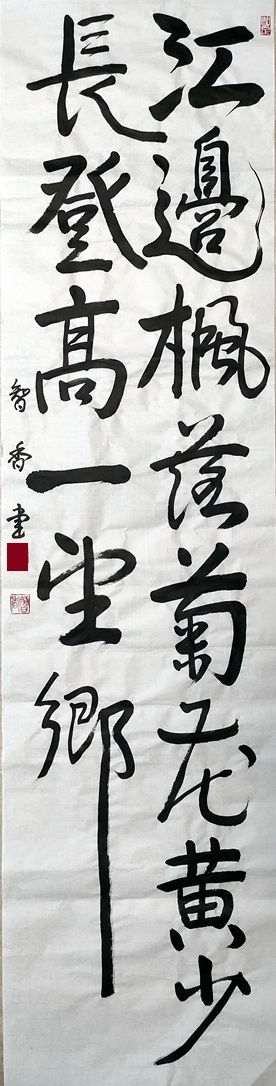 江邊楓落菊花黃少
長登高一望鄉
智香堂